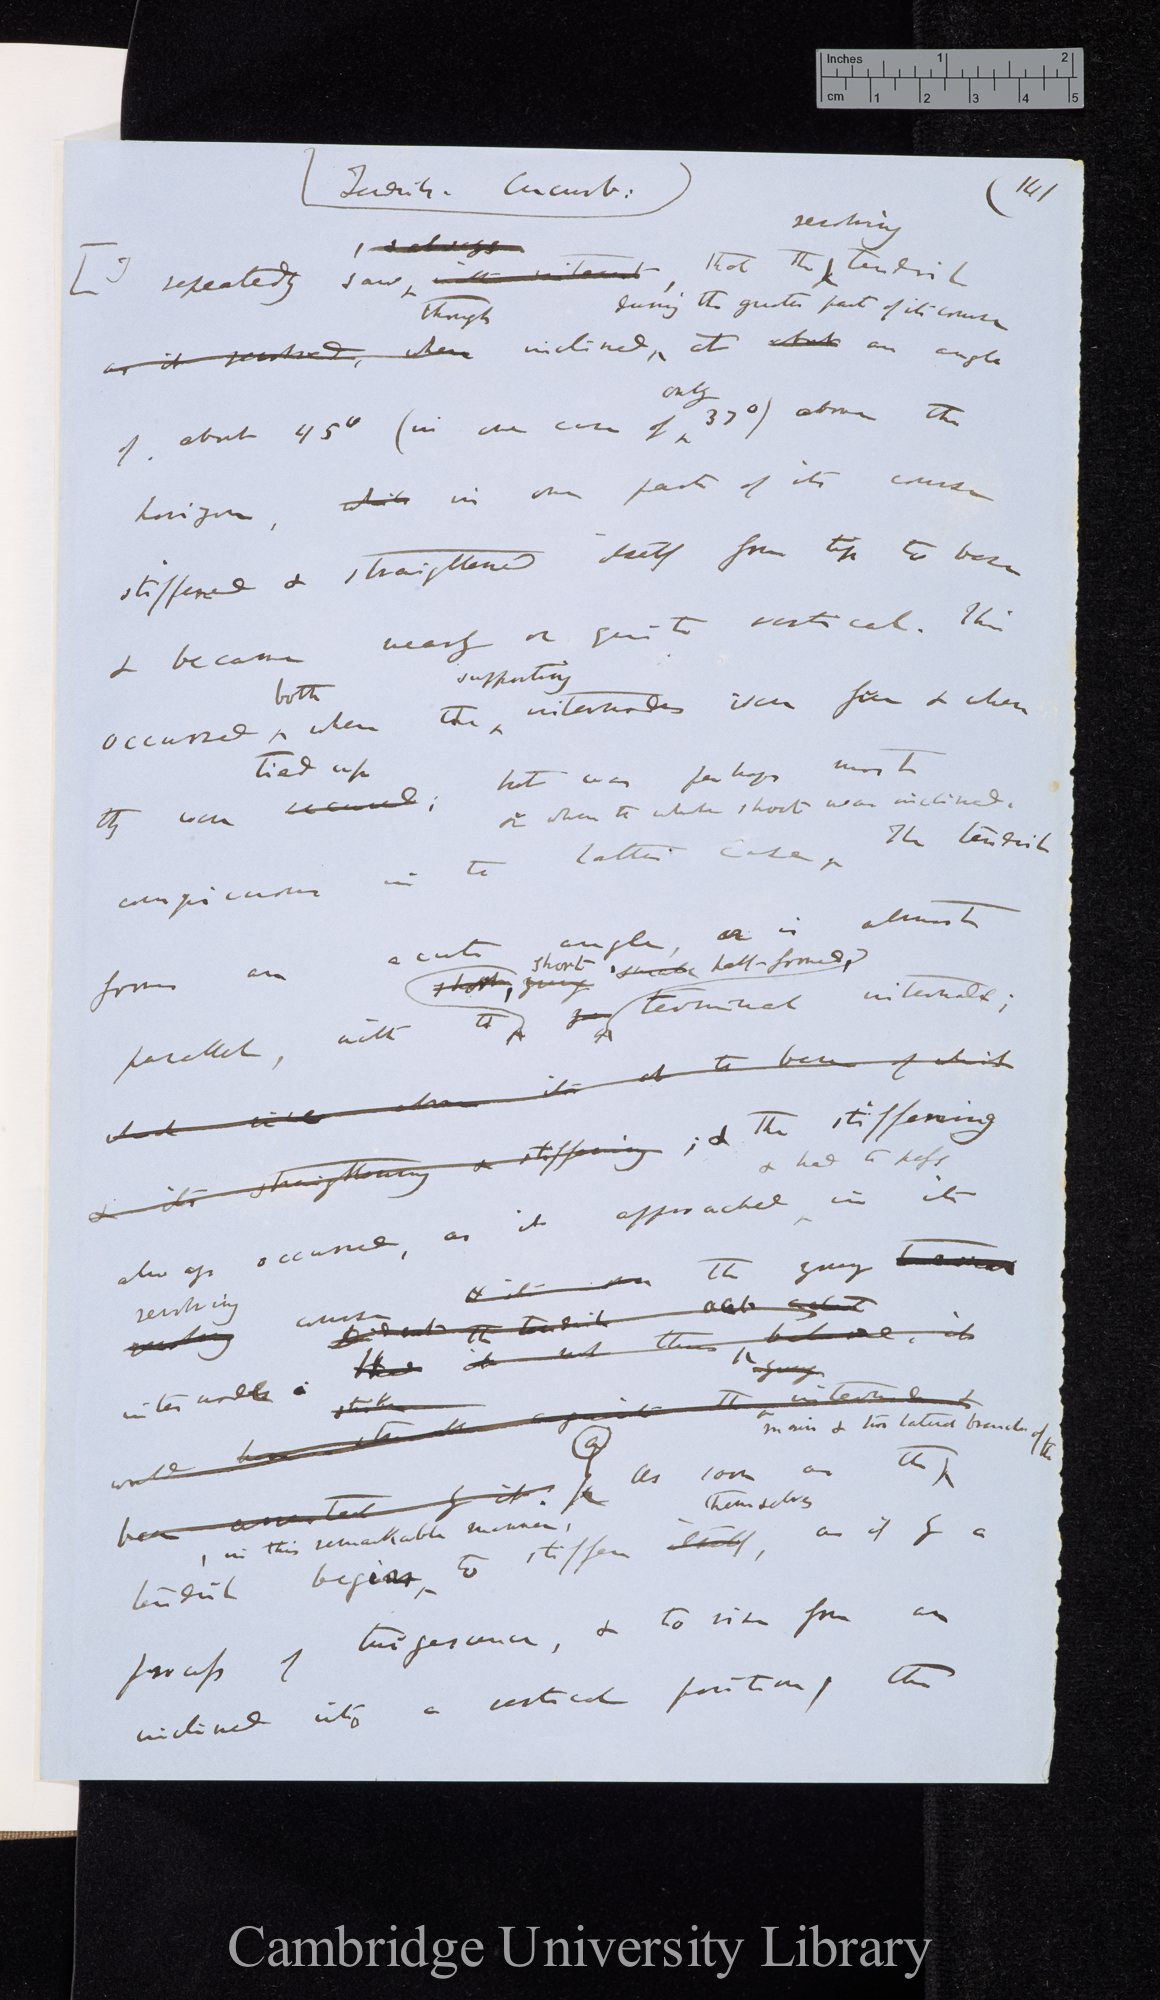 Inches 1 2
cm 1 2 3 4 5
Tendrils. Cucurb:
(141
revolving
always
[I repeatedly saw, with interest, that the tendril
though during the greater part of its course
as it revolved, when inclined, at about an angle
only
of about 45° (in one case of 37°) above the
horizon, which in one part of its course
stiffened & straightened itself from tip to base
& became nearly or quite vertical. This
both supporting
occurred, when the internodes were free & when
tied up
they were secured; but was perhaps most
or when the whole shoot was inclined.
conspicuous in the latter case, The tendril
forms an acute angle, or is almost
short, young short small half-formed,
parallel, with the terminal internode;
above it at the base of which
& its straightening & stiffening; & the stiffening
& had to pass
always occurred, as it approached, in its
revolving
course the young
internodes
the tendril
if it not thus behaved, it
strike young
would have struck against the internode &
main & two lateral branches of the
been arrested by it. (a) As soon as the
, in this remarkable manner, themselves
tendril begins, to stiffen itself, as if by a
process of turgescence, & to rise from an
inclined into a vertical position, the
Cambridge University Library